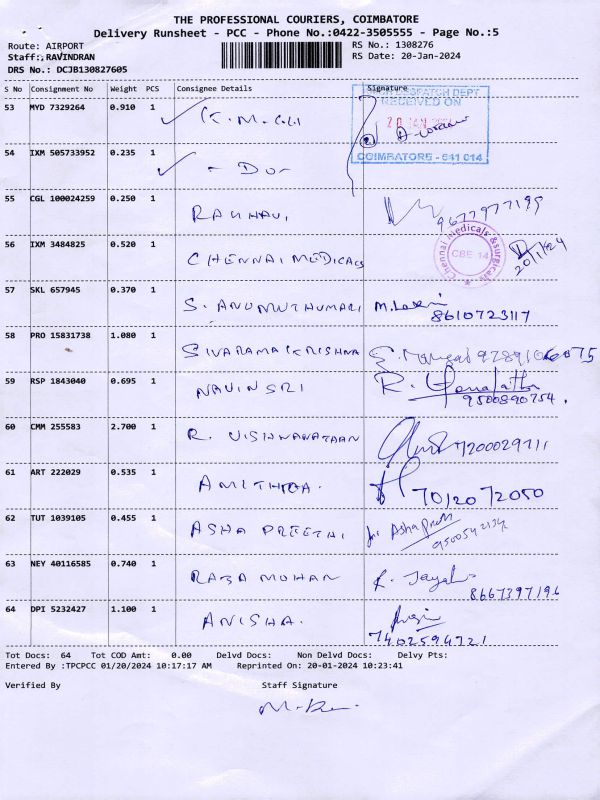 THE PROFESSIONAL COURIERS, COIMBATORE
Delivery Runsheet - PCC - Phone No.:0422-3505555 - Page No.:5
Route: AIRPORT RS No.: 1308276
Staff:,RAVINDRAN RS Date: 20-Jan-2024
DRS No.: DCJB130827605
S No Consignment No Weight PCS Consignee Details Signature
DESPATCH DEPT
RECEIVED ON
COIMBATORE - 641 014
53 MYD 7329264 0.910 1
54 IXM 505733952 0.235 1 - Do -
55 CGL 100024259 0.250 1 RAGHAVI 9677977199
56 IXM 3484825 0.520 1 CHENNAI MEDICALS Chennai Medicals & Surgicals CBE 14 20/1/24
57 SKL 657945 0.370 1 S. 8610723117
58 PRO 15831738 1.080 1 SIVARAMAKRISHNA
59 RSP 1843040 0.695 1 NAVIN SRI R. 9500890754.
60 CMM 255583 2.700 1 R. VISHWANATHAN 7200029711
61 ART 222029 0.535 1 7012072050
62 TUT 1039105 0.455 1 ASHA PREETHI Asha Preethi
63 NEY 40116585 0.740 1 RAJA MOHAN 8667397196
64 DPI 5232427 1.100 1 ANISHA. 7402594721
Tot Docs: 64 Tot COD Amt: 0.00 Delvd Docs: Non Delvd Docs: Delvy Pts:
Entered By :TPCPCC 01/20/2024 10:17:17 AM Reprinted On: 20-01-2024 10:23:41
Verified By Staff Signature